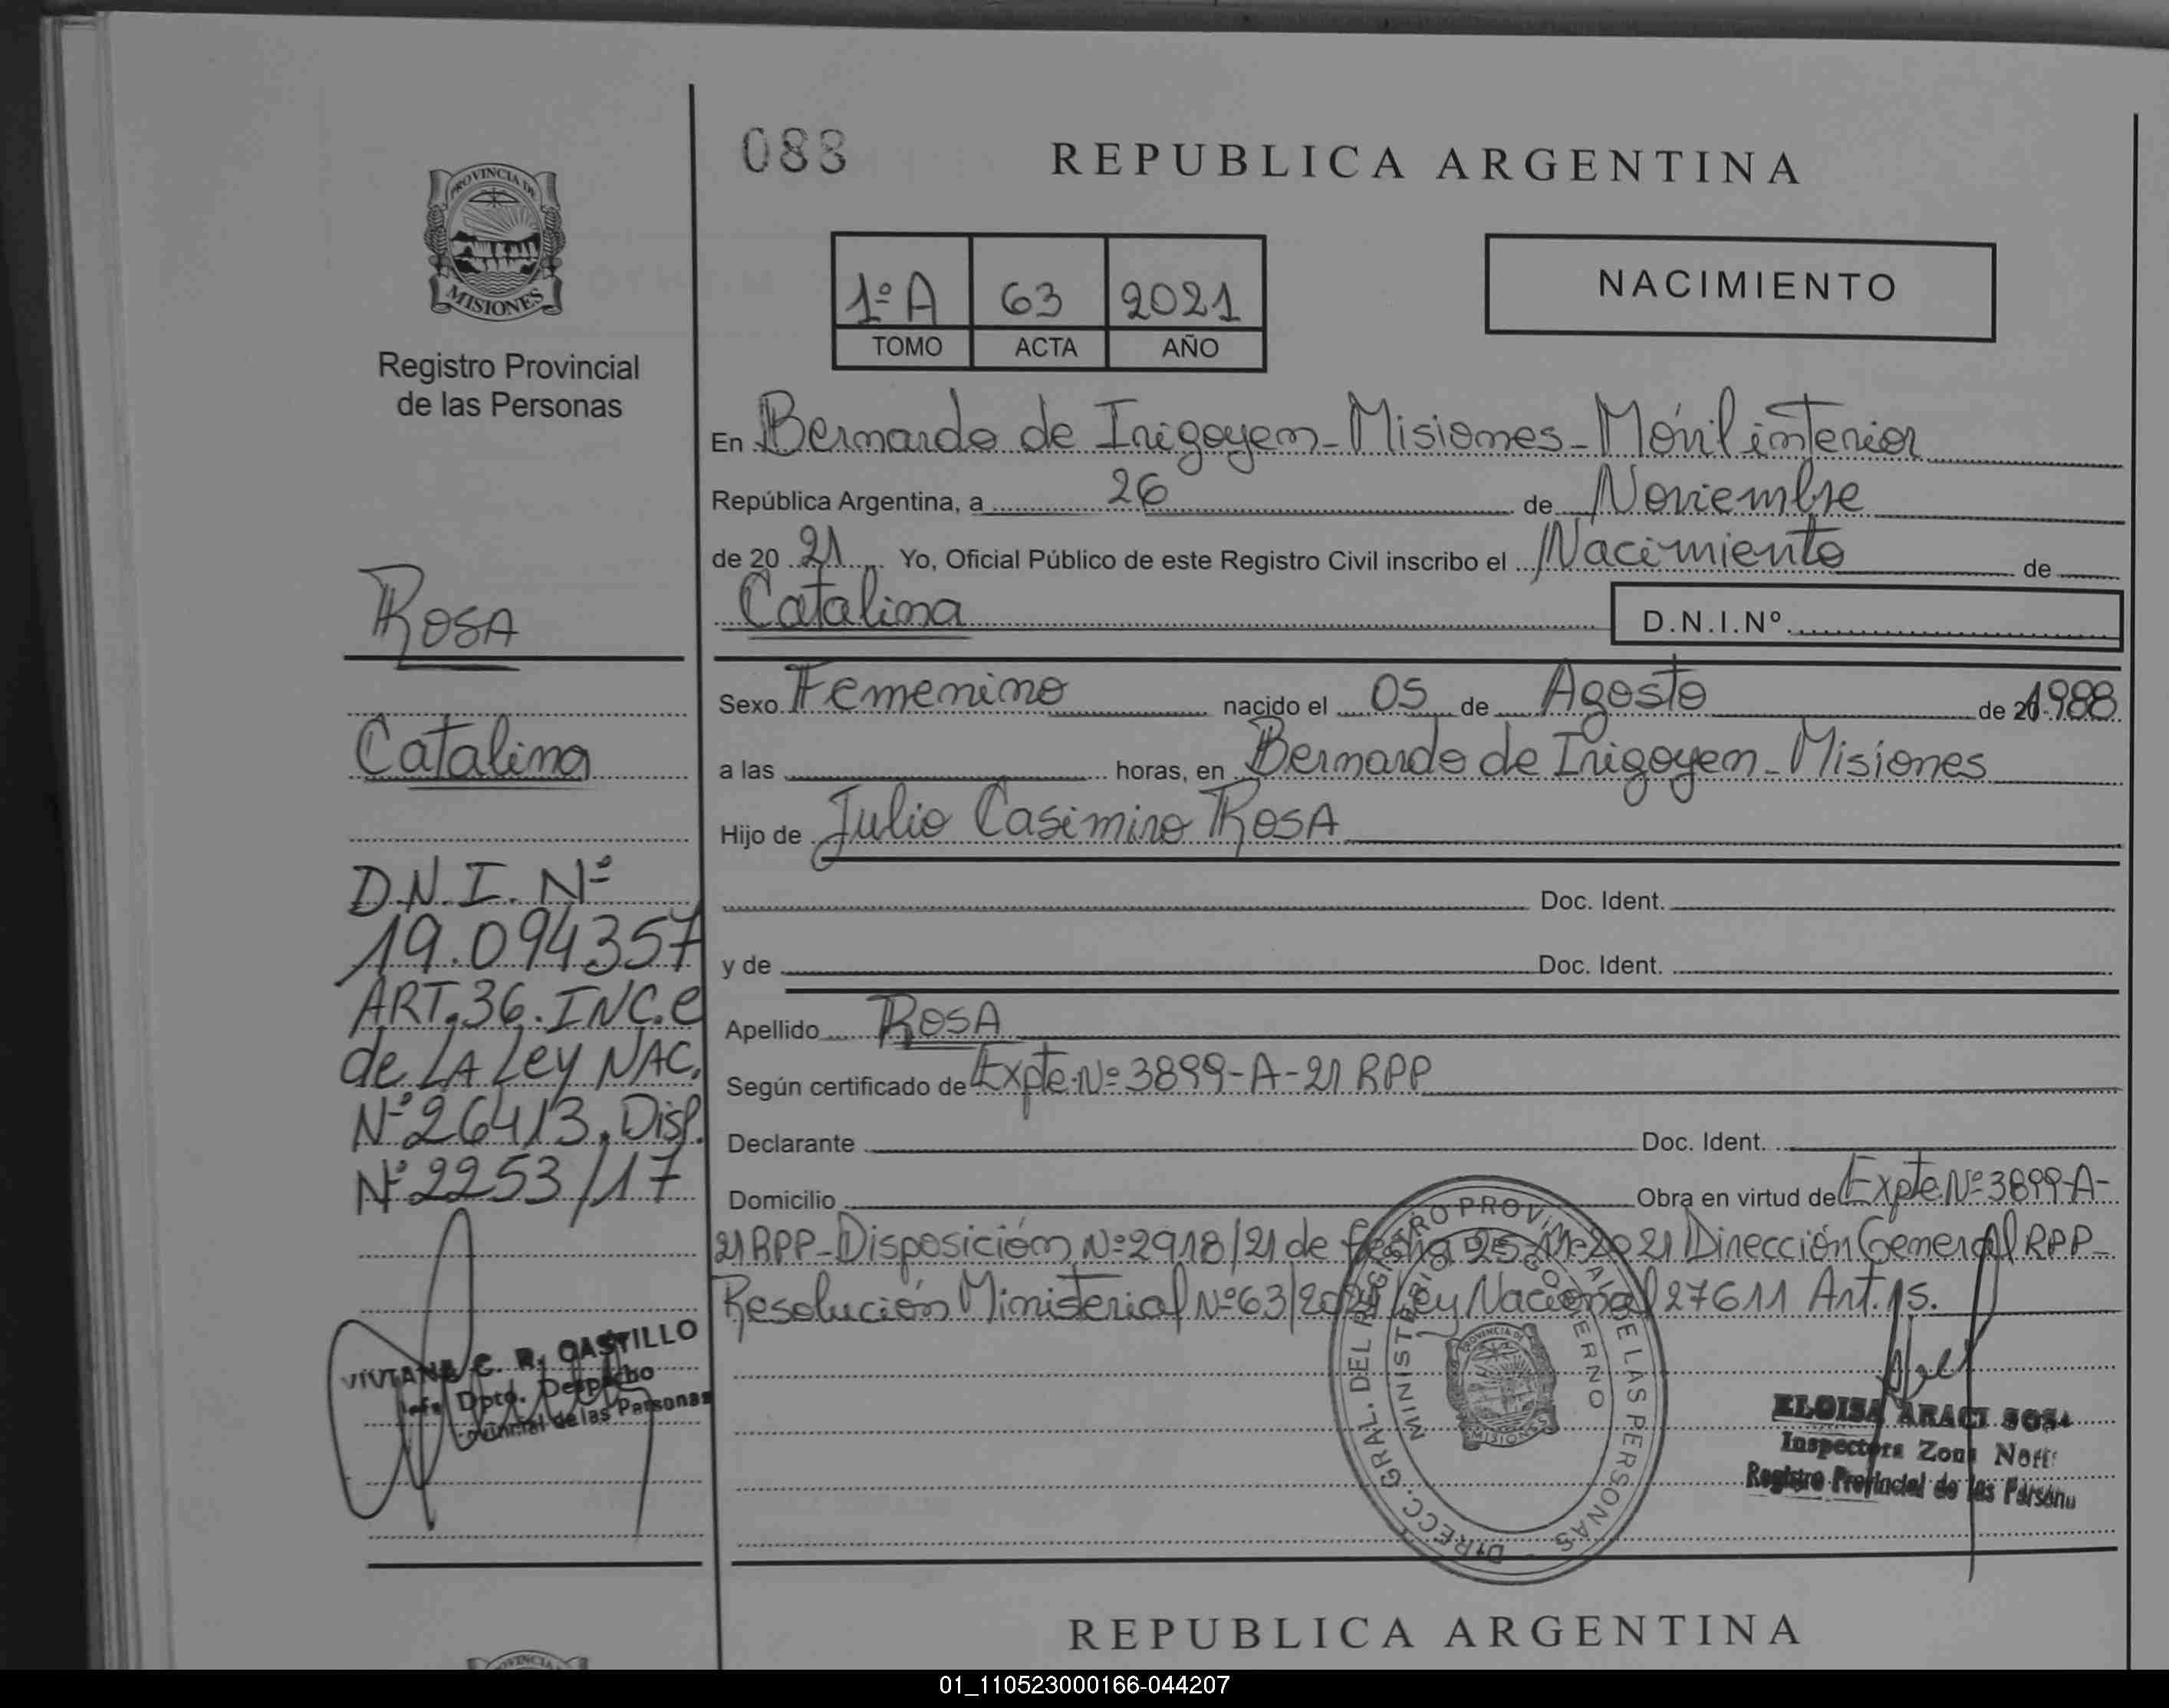 083
REPUBLICA ARGENTINA
PROVINCIA DE
MISIONES
Registro Provincial
de las Personas
1º A 63 2021
TOMO ACTA AÑO
NACIMIENTO
En Bernardo de Irigoyen - Misiones - Móvil interior
República Argentina, a 26 de Noviembre
de 20 21 Yo, Oficial Público de este Registro Civil inscribo el Nacimiento de
Catalina
D.N.I.Nº
Sexo Femenino nacido el 05 de Agosto de 20 1988
a las horas, en Bernardo de Irigoyen - Misiones
Hijo de Julio Casimiro ROSA
Doc. Ident.
y de Doc. Ident.
Apellido ROSA
Según certificado de Expte. Nº 3899-A-21 RPP
Declarante Doc. Ident.
Domicilio Obra en virtud de Expte Nº 3899-A-
21 RPP - Disposición Nº 2918/21 de fecha 25-11-2021 Dirección General RPP -
Resolución Ministerial Nº 63/2021 Ley Nacional 27611 Art. 15.
ROSA
Catalina
D.N.I. Nº
19.094357
ART. 36. INC. e
de LA Ley NAC.
Nº 26413. Disp.
Nº 2253/17
VIVIANA C. R. CASTILLO
Jefe Dpto. Despacho
Provincial de las Personas
DIRECC. GRAL. DEL REGISTRO PROVINCIAL DE LAS PERSONAS
MINISTERIO DE GOBIERNO
PROVINCIA DE
MISIONES
ELOISA ARACI SOSA
Inspectora Zona Norte
Registro Provincial de las Persona
REPUBLICA ARGENTINA
01_110523000166-044207